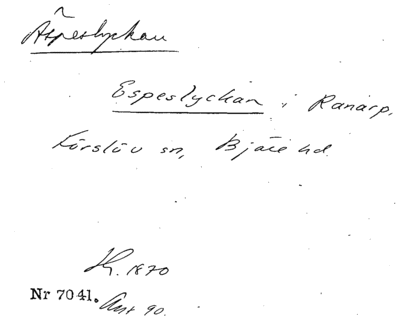 Äspeslyckan
Espeslyckan i Ranarp,
Förslöv sn, Bjäre hd.
H. 1870
Nr 7041. Ant 90.